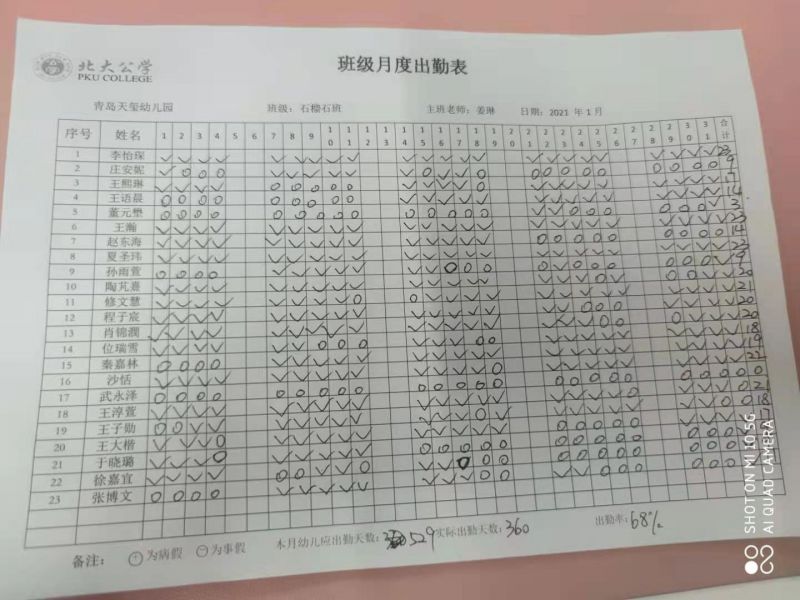 北大公学
PKU COLLEGE
班级月度出勤表
青岛天玺幼儿园 班级：石榴石班 主班老师：姜琳 日期：2021 年 1 月
序号 姓名 1 2 3 4 5 6 7 8 9 10 11 12 13 14 15 16 17 18 19 20 21 22 23 24 25 26 27 28 29 30 31 合计
1 李怡琛 23
2 庄安妮 9
3 王熙琳
4 王语晨 14
5 董元樊 3
6 王瀚 23
7 赵东海 14
8 夏圣玮 23
9 孙雨萱 9
10 陶芃熹 20
11 修文慧 21
12 程子宸 20
13 肖锦澜 20
14 位瑞雪 18
15 秦嘉林 19
16 沙恬 22
17 武永泽 0
18 王淳萱 21
19 王子勋 18
20 王大楷 17
21 于晓璐
22 徐嘉宜
23 张博文
备注： 为病假 为事假 本月幼儿应出勤天数： 529 实际出勤天数：360 出勤率：68%
SHOT ON MI 10 5G
AI QUAD CAMERA